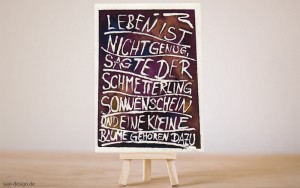 LEBEN IST
NICHT GENUG,
SAGTE DER
SCHMETTERLING
SONNENSCHEIN
UND EINE KLEINE
BLUME GEHÖREN DAZU